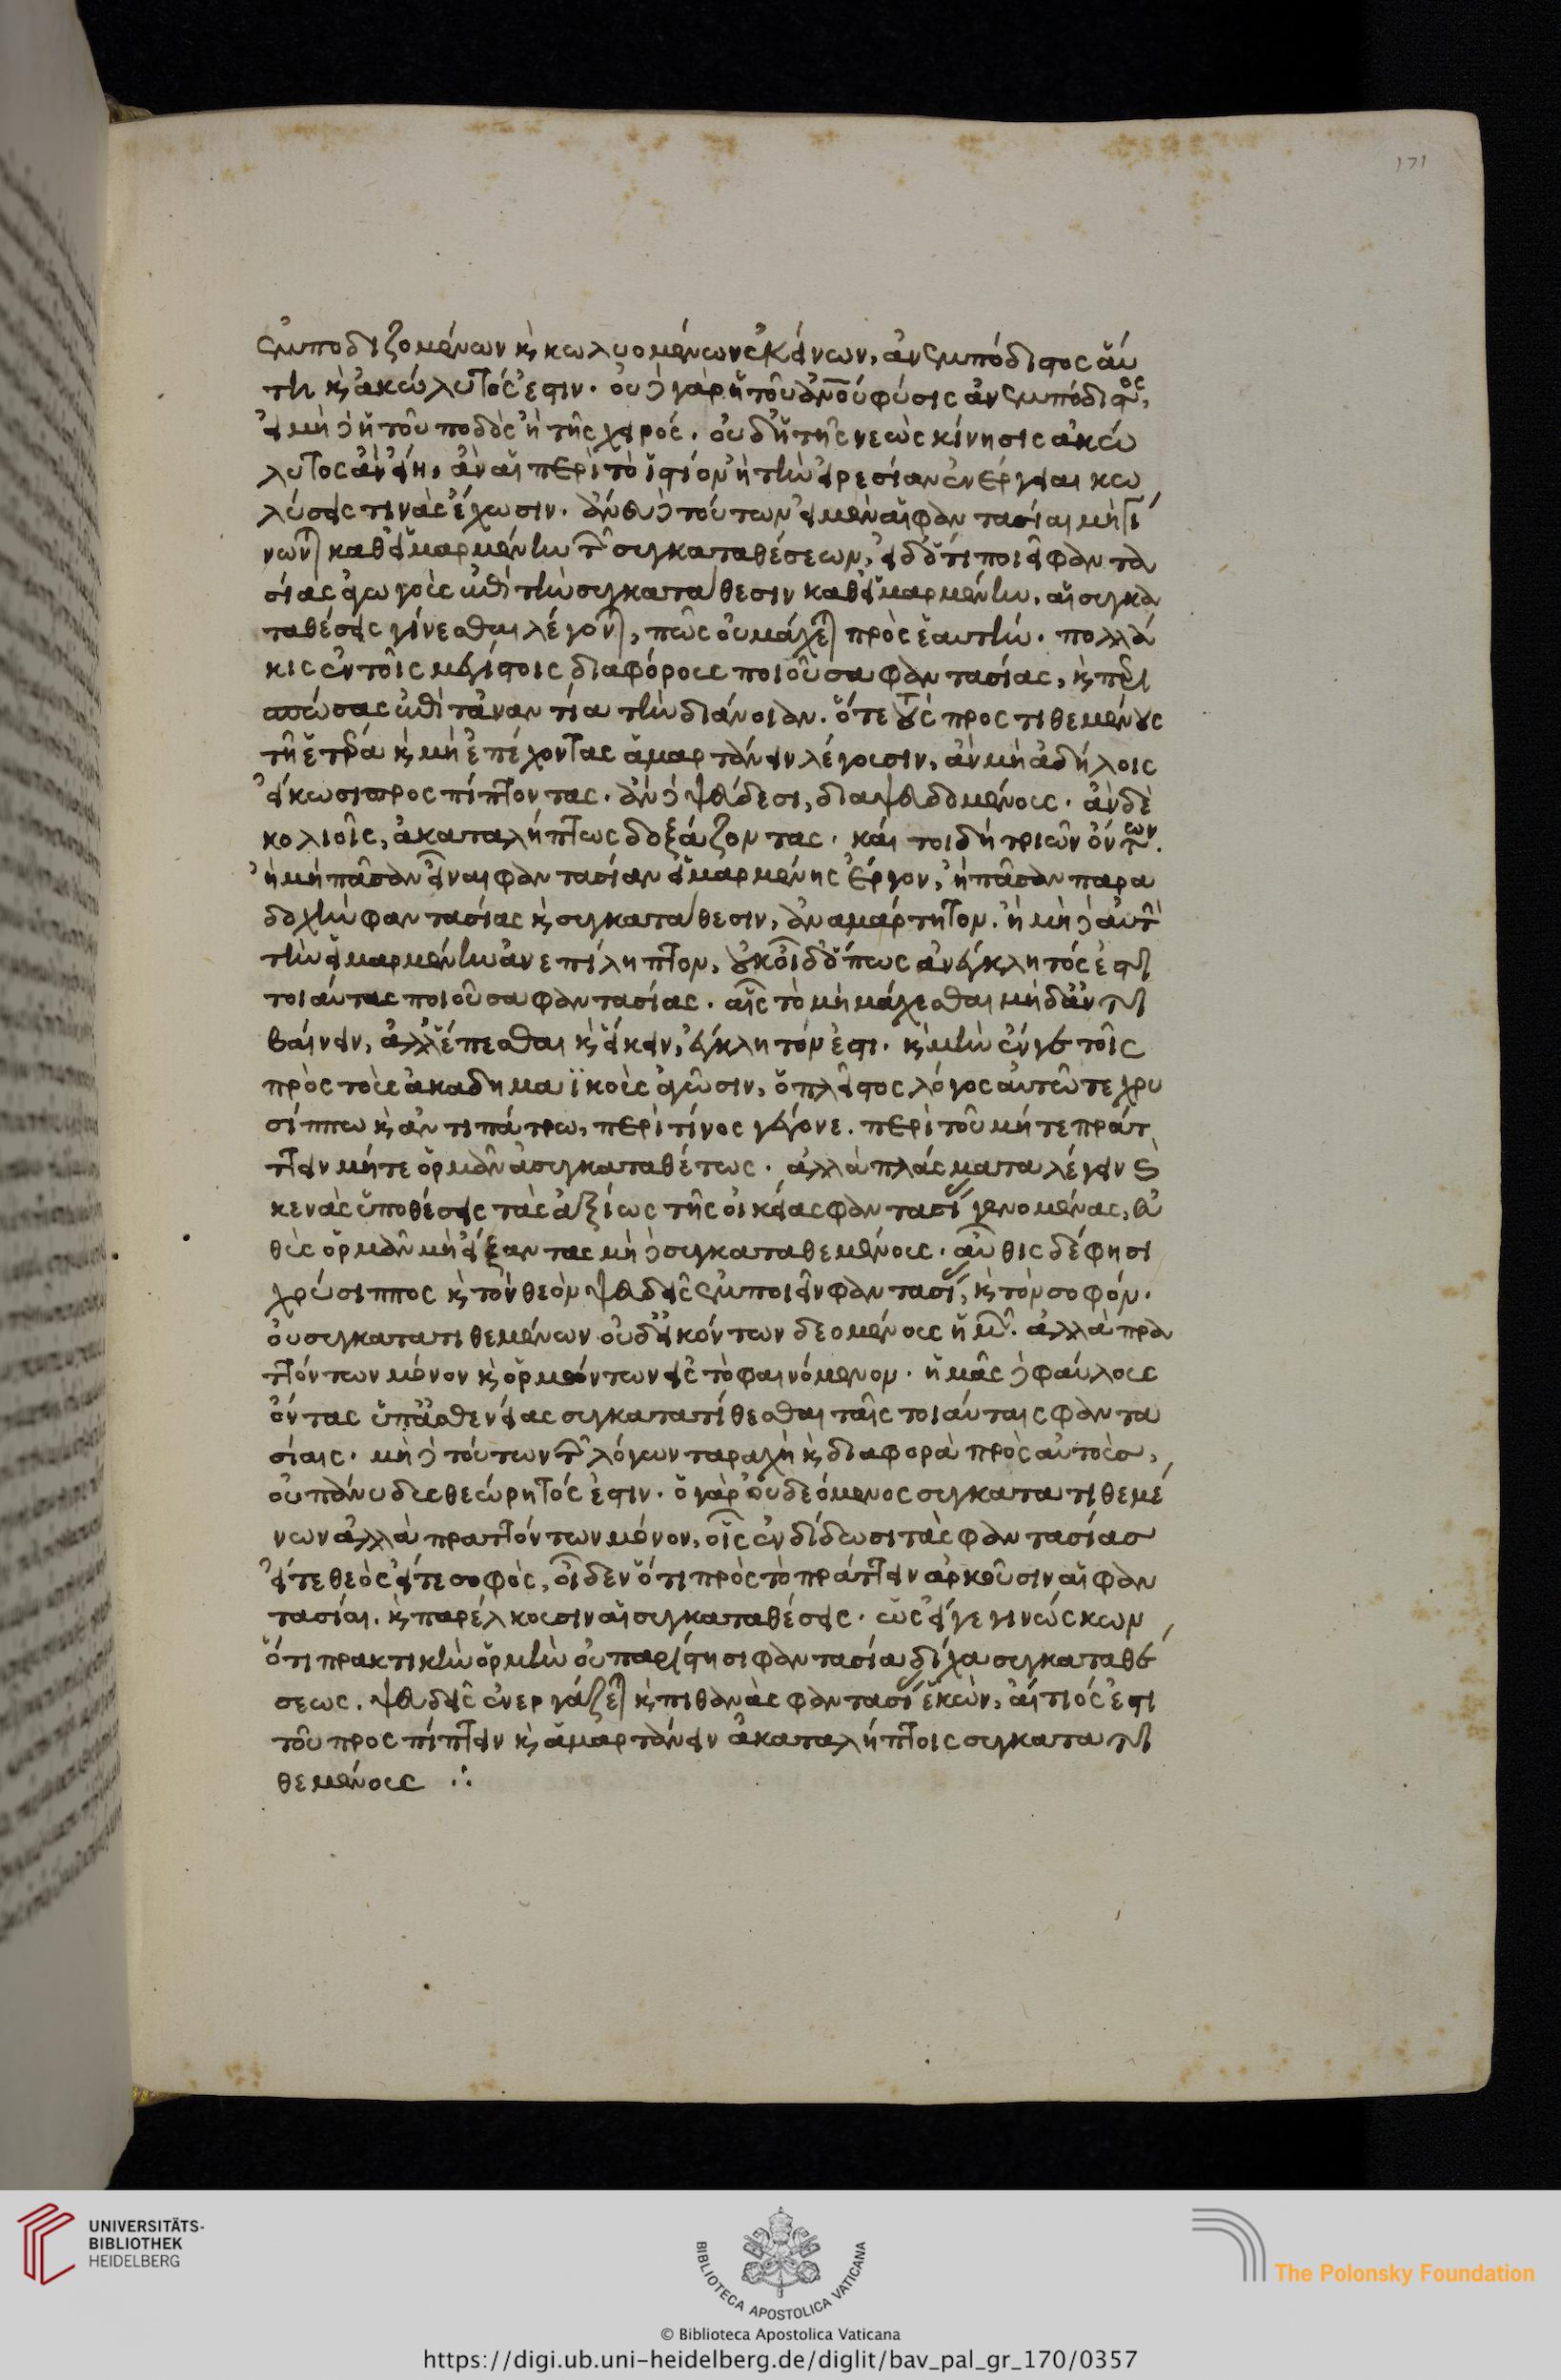 171
ἐμποδιζομένων κ̀ κωλυομένων ἐκείνων, ἀνεμπόδιστος αὕ
τη κ̀ ἀκώλυτός ἐστιν. οὐδὲ γὰρ ἡ τοῦ ἀνου φύσις ἀνεμπόδιστος,
εἰ μὴ δὲ ἡ τοῦ ποδὸς ἢ τῆς χειρός. οὐδ' ἡ τῆς νεὼς κίνησις ἀκώ
λυτος ἂν εἴη, ἂν αἱ περὶ τὸ ἱστίον ἢ τὴν εἰρεσίαν ἐνέργειαι κω
λύσεις τινὰς ἔχωσιν. ἄνευ δὲ τούτων εἰ μὲν αἱ φαντασίαι μὴ γί
νωνται καθ' εἱμαρμένην τῶν συγκαταθέσεων, εἰ δ' ὅτι ποιεῖ φαντα
σίας ἀγωγοὺς ἐπὶ τὴν συγκατάθεσιν καθ' εἱμαρμένην, αἱ συγκα
ταθέσεις γίνεσθαι λέγονται, πῶς οὐ μάχεται πρὸς ἑαυτήν. πολλά
κις ἐν τοῖς μεγίστοις διαφόρους ποιοῦσα φαντασίας, κ̀ περι
σπώσας ἐπὶ τἀναντία τὴν διάνοιαν. ὅτε τοὺς προστιθεμένους
τῇ ἑτέρᾳ κ̀ μὴ ἐπέχοντας ἁμαρτάνειν λέγουσιν, ἂν μὴ ἀδήλοις
εἴκωσι προσπίπτοντας. ἂν δὲ ψευδέσι, διαψευδομένους. ἂν δὲ
κολιοῖς, ἀκαταλήπτως δοξάζοντας. καί τοι δὴ τριῶν ὄντων.
ἢ μὴ πᾶσαν εἶναι φαντασίαν εἱμαρμένης ἔργον, ἢ πᾶσαν παρα
δοχὴν φαντασίας κ̀ συγκατάθεσιν, ἀναμάρτητον. ἢ μὴ δὲ αὐτὴν
τὴν εἱμαρμένην ἀνεπίληπτον, οὐκ οἶδ' ὅπως ἀνέγκλητός ἐστι
τοιαύτας ποιοῦσα φαντασίας. αἷς τὸ μὴ μάχεσθαι μηδ' ἀντι
βαίνειν, ἀλλ' ἕπεσθαι κ̀ εἴκειν, ἔγκλητόν ἐστι. κ̀ μὴν ἔν γε τοῖς
πρὸς τοὺς ἀκαδημαϊκοὺς ἀγῶσιν, ὁ πλεῖστος λόγος αὐτῷ τε χρυ
σίππω κ̀ ἀντιπάτρω, περὶ τίνος γέγονε. περὶ τοῦ μήτε πράτ
τειν μήτε ὁρμᾶν ἀσυγκαταθέτως. ἀλλὰ πλάσματα λέγειν κ̀
κενὰς ὑποθέσεις τὰς ἀξίως τῆς οἰκείας φαντασίας γενομένας, εὐ
θὺς ὁρμᾶν μὴ εἴξαντας μὴ δὲ συγκαταθεμένους. αὖθις δέ φησι
χρύσιππος κ̀ τὸν θεὸν ψευδεῖς ἐμποιεῖν φαντασίας, κ̀ τὸν σοφόν.
οὐ συγκατατιθεμένων οὐδ' εἰκόντων δεομένους ἡμῶν. ἀλλὰ πρα
ττόντων μόνον κ̀ ὁρμώντων εἰς τὸ φαινόμενον. ἡμᾶς δὲ φαύλους
ὄντας ὑπ' ἀσθενείας συγκατατίθεσθαι ταῖς τοιαύταις φαντα
σίαις. μὴ δὲ τούτων τῶν λόγων ταραχὴ κ̀ διαφορὰ πρὸς αὐτοὺσ,
οὐ πάνυ δυσθεώρητός ἐστιν. ὁ γὰρ οὐ δεόμενος συγκατατιθεμέ
νων ἀλλὰ πραττόντων μόνον, οἷς ἐνδίδωσι τὰς φαντασίασ
εἴτε θεὸς εἴτε σοφὸς, οἶδεν ὅτι πρὸς τὸ πράττειν ἀρκοῦσιν αἱ φαν
τασίαι. κ̀ παρέλκουσιν αἱ συγκαταθέσεις. ὡς εἴγε γινώσκων
ὅτι πρακτικὴν ὁρμὴν οὐ παρίστησι φαντασία δίχα συγκαταθέ
σεως. ψευδεῖς ἐνεργάζεται κ̀ πιθανὰς φαντασίας ἑκὼν, αἴτιός ἐστι
τοῦ προσπίπτειν κ̀ ἁμαρτάνειν ἀκαταλήπτοις συγκατατι
θεμένους ∴
UNIVERSITÄTS-
BIBLIOTHEK
HEIDELBERG
BIBLIOTECA APOSTOLICA VATICANA
The Polonsky Foundation
© Biblioteca Apostolica Vaticana
https://digi.ub.uni-heidelberg.de/diglit/bav_pal_gr_170/0357